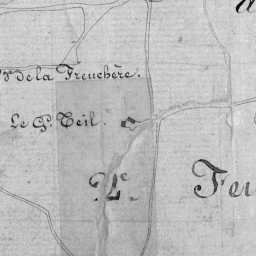 de la Freuchère.
Le Gd. Teil.
2e Feu